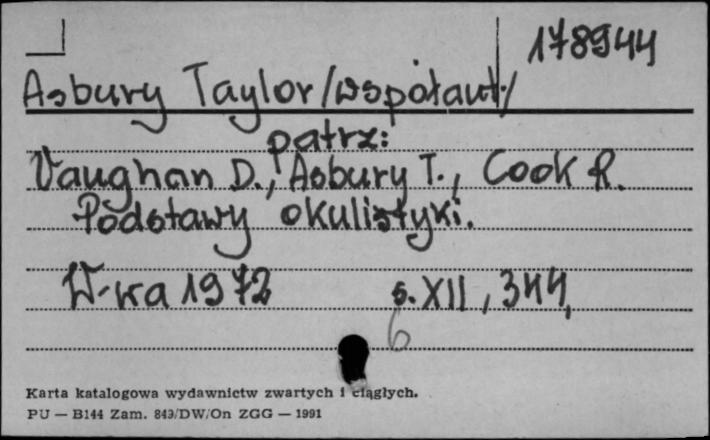 178944
Asbury Taylor /współaut./
patrz:
Vaughan D., Asbury T., Cook R.
Podstawy okulistyki.
W-wa 1972 s. XII, 344,
6
Karta katalogowa wydawnictw zwartych i ciągłych.
PU — B144 Zam. 849/DW/On ZGG — 1991